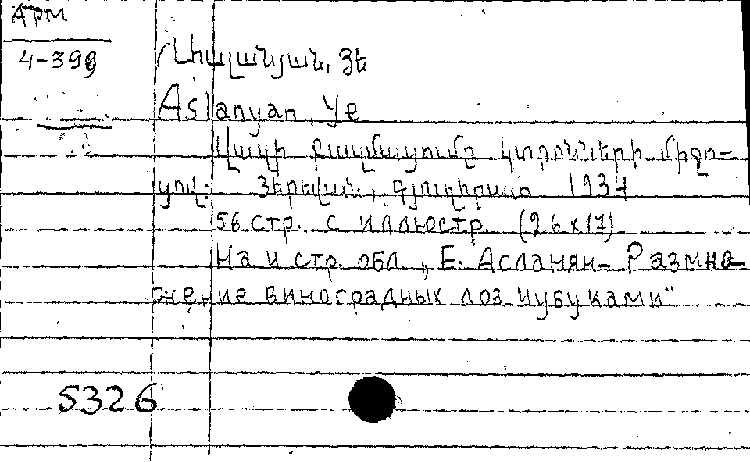 АРМ
4-399
Ասլանյան, Յե
Aslanyan Ye
Վազի բազմացումը կտրոնների միջո-
ցով: Յերևան, Գյուղհրատ 1934
56 стр. с иллюстр (26x17)
На и стр. обл „Е. Асланян– Размно
жение виноградных лоз чубуками“
5326